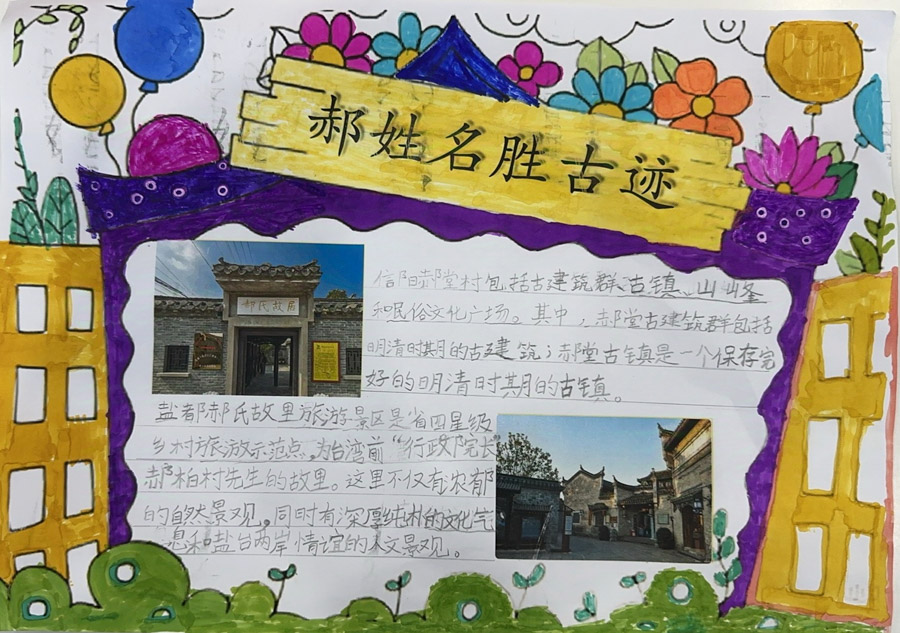 郝姓名胜古迹
郝氏故居
信阳郝堂村包括古建筑群、古镇、山峰
和民俗文化广场。其中，郝堂古建筑群包括
明清时期的古建筑；郝堂古镇是一个保存完
好的明清时期的古镇。
盐都郝氏故里旅游景区是省四星级
乡村旅游示范点，为台湾前“行政院院长”
郝柏村先生的故里。这里不仅有浓郁
的自然景观，同时有深厚纯朴的文化气
息和盐台两岸情谊的人文景观。